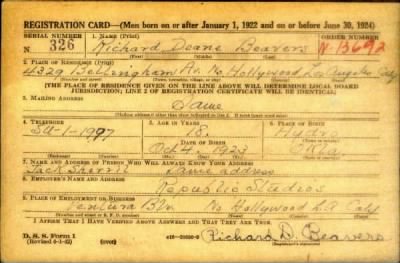 REGISTRATION CARD—(Men born on or after January 1, 1922 and on or before June 30, 1924)
SERIAL NUMBER 1. NAME (Print) ORDER NUMBER
N 326 Richard Deane Beavers N-13692
2. PLACE OF RESIDENCE (Print)
4329 Bellingham Av. No. Hollywood Los Angeles Calif
[THE PLACE OF RESIDENCE GIVEN ON THE LINE ABOVE WILL DETERMINE LOCAL BOARD
JURISDICTION; LINE 2 OF REGISTRATION CERTIFICATE WILL BE IDENTICAL]
3. MAILING ADDRESS
Same
4. TELEPHONE 5. AGE IN YEARS 6. PLACE OF BIRTH
SU-1-1997 18 Hydro
DATE OF BIRTH
Oct 4 1923 Okla
7. NAME AND ADDRESS OF PERSON WHO WILL ALWAYS KNOW YOUR ADDRESS
Jack Sherrill Same address
8. EMPLOYER'S NAME AND ADDRESS
Republic Studios
9. PLACE OF EMPLOYMENT OR BUSINESS
Ventura Blv No Hollywood L.A Calif
I AFFIRM THAT I HAVE VERIFIED ABOVE ANSWERS AND THAT THEY ARE TRUE.
D. S. S. Form 1 (over) Richard D. Beavers